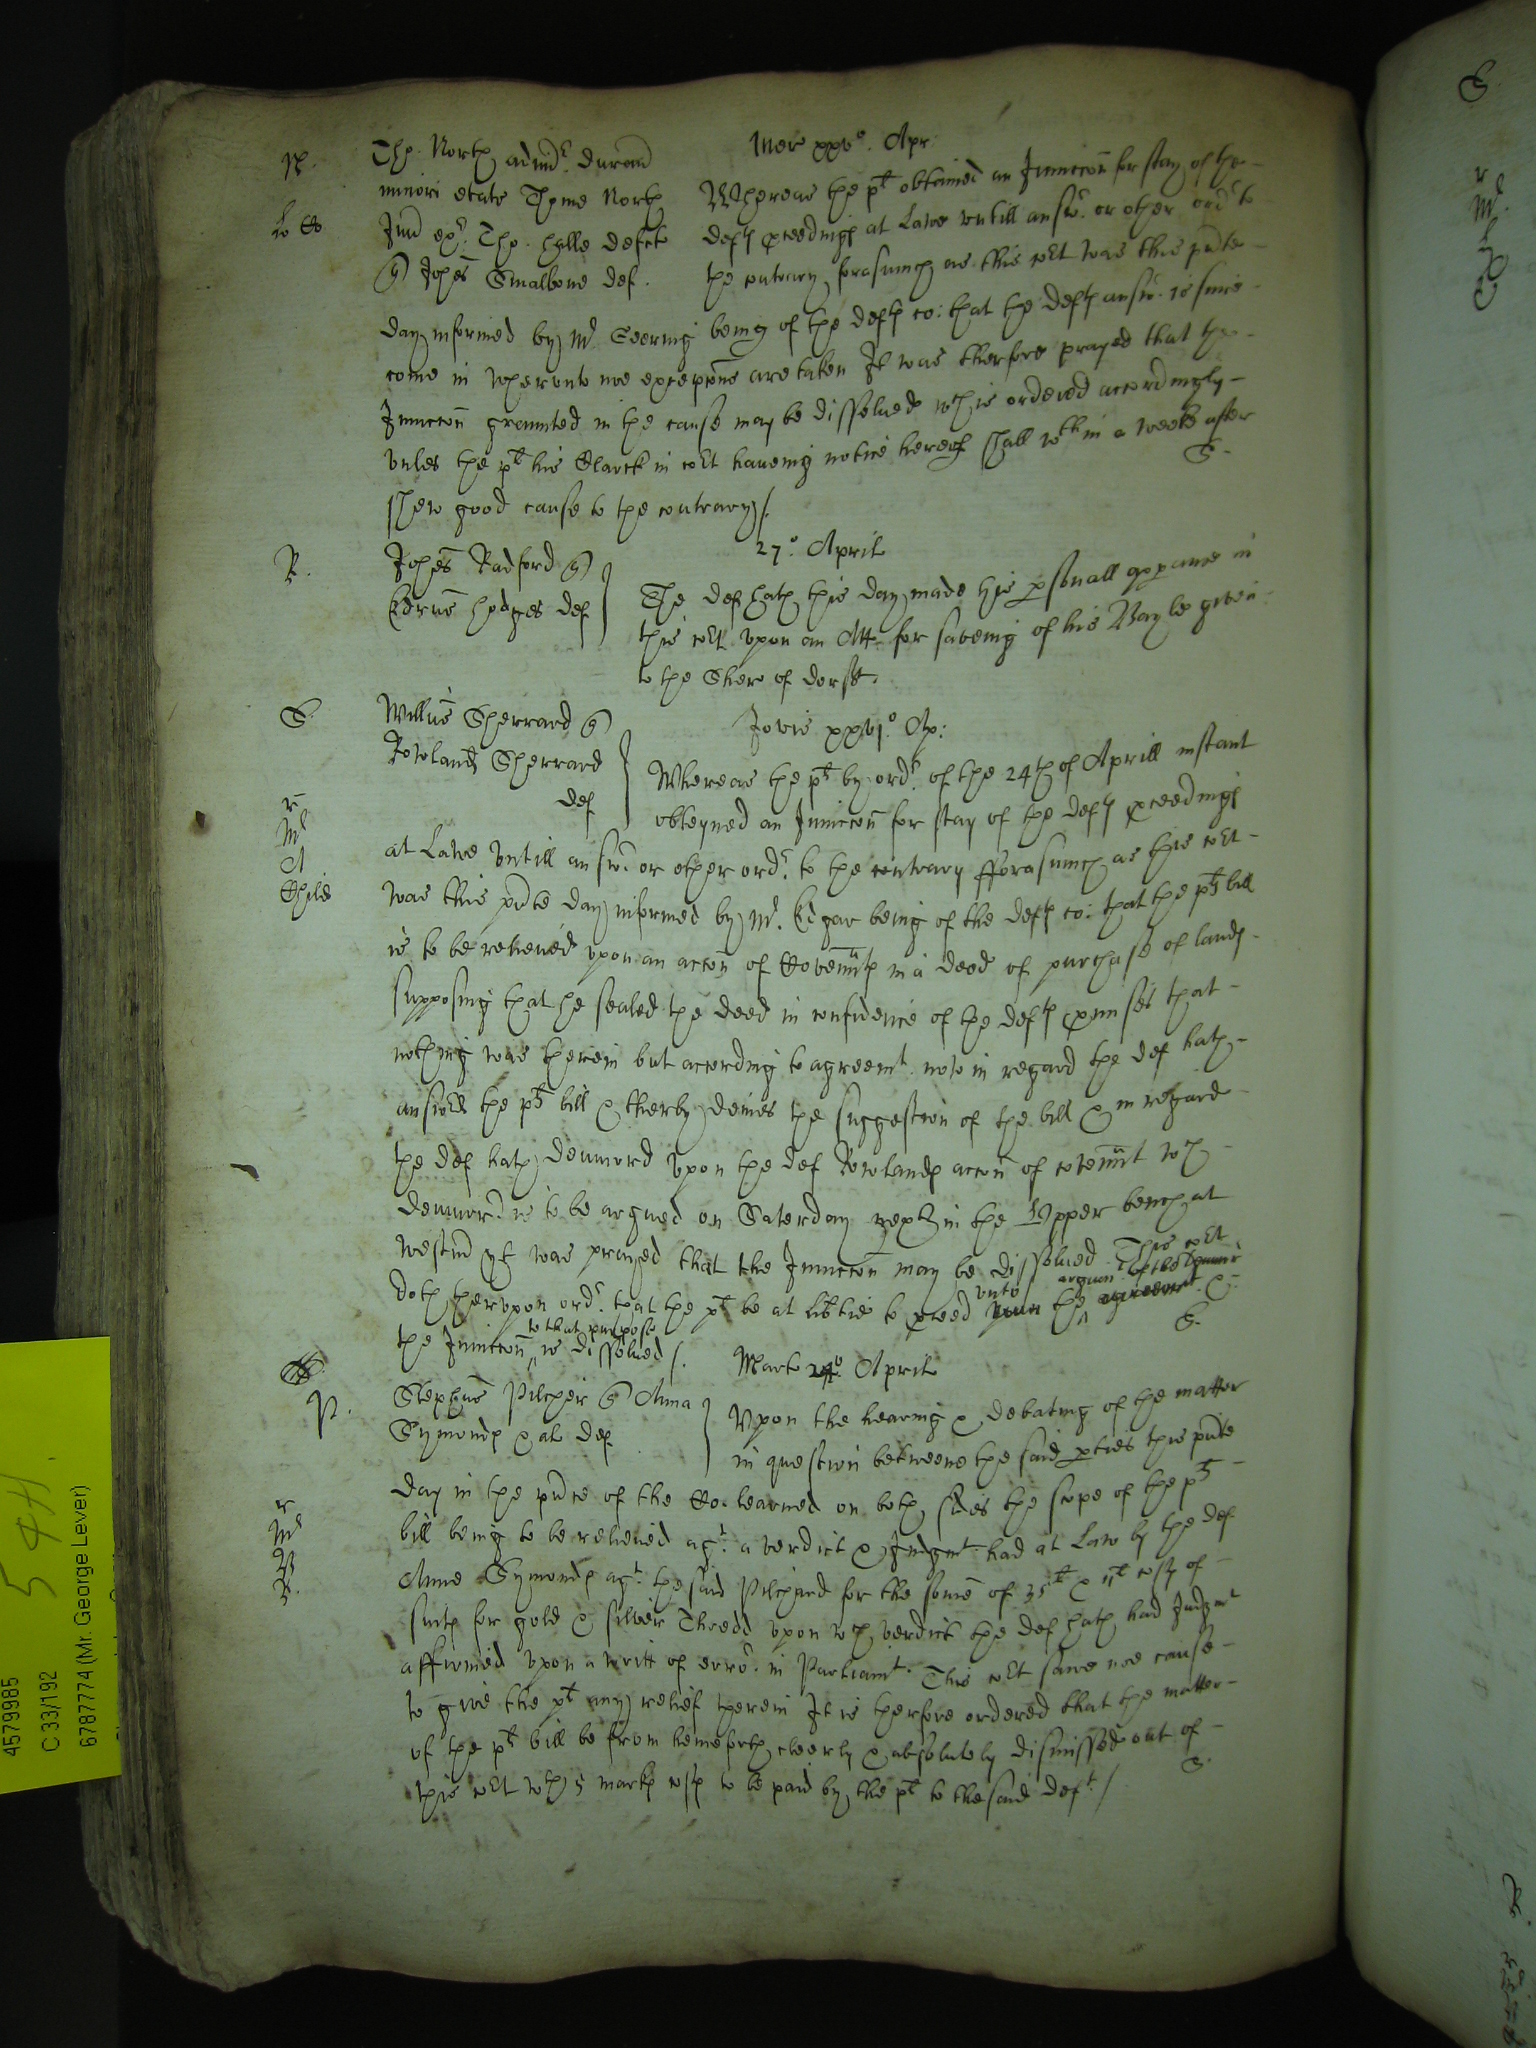 N.
Tho. North admr. durand
Mer xxvo. Apr.
minori etate
North
Whereas the plt obtained an Iniuccon for stay of the
defts pceedings at Lawe untill answr. or other ordr. to
Smalbone def.
the contrary forasmuch as this cort was this pnte
day informed by Mr. Seering being of the defts co: that the defts answr. is since
come in whereunto noe excepcons are taken It was therfore prayed that the
Iniuccon graunted in the cause may be dissolved wch is ordered accordingly
unles the plt his Clarck in cort haveing notice hereof shall wthin a weeke after
shew good cause to the contrary /.
S.
R.
Johes Radford
27o. April
Hodges def
The def hath this day made his psonall appance in
this cort upon an Att. for saveing of his Bayle given
to the Shere of dorst.
S.
Willus Sherrard
Jovis xxvjo. Ap:
Rowland Sherrard
def
Whereas the plt by ordr. of the 24th of Aprill instant
obteyned an Iniuccon for stay of the defts pceedings
r
Mr
A
Childe
at Lawe untill answr. or other ordr. to the contrary fforasmuch as this cort
was this pnte day informed by Mr. Edgar being of the defts co: that the plts bill
is to be releived upon an accon of Covennt in a deed of purchase of lands
supposing that he sealed the deed in confidence of the defts pmises that
nothing was therein but according to agreemt. now in regard the def hath
answed the plts bill & therby denies the suggestion of the bill & in regard
the def hath demurred upon the def Rowlands accon of covennt wch
demurr. is to be argued on Saterday next in the Upper bench at
Westmr yt was prayed that the Iniuccon may be dissolved This cort
doth herupon ordr. that the plt be at libtie to pceed unto the argumt. of the demurr &
the Iniuccon to that purpose is dissolved /.
S.
P.
Marto 24o. April
Stephus Pilcher Anna
Symonds & al def
Upon the hearing & debating of the matter
in question betweene the said pties this pnte
r
Mr
B
R.
day in the pnce of the Co. learned on both sides the scope of the plts
bill being to be releived agt. a verdict & Judgmt had at Law by the def
Anne Symonds agt. the said Pilchard for the some of 35li & 11li costs of
suite for gold & silver Thredd upon wch verdict the def hath had Judgmt
affirmed upon a writt of error. in Parliamt. This cort sawe noe cause
to give the plt any relief therein It is therfore ordered that the matter
of the plts bill be from henceforth cleerly & absolutely dismissed out of
this cort wth 5 marks costs to be paid by the plt to the said deft. /
S.
54H.
4579985
C 33/192
6787774 (Mr. George Lever)